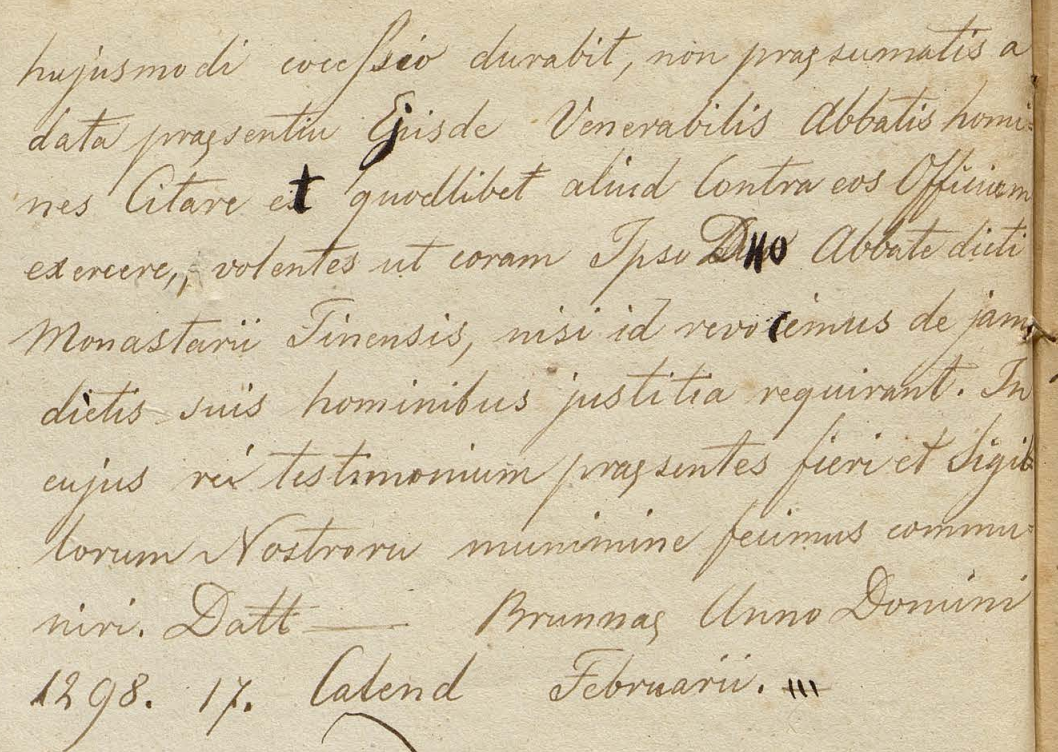 hujusmodi coccſsio durabit, non praesumatis a
data praesentiu Ejusde Venerabilis Abbatis homi=
nes Citare et quodlibet aliud Contra eos Officium
exercere,, volentes ut coram Ipso Dno Abbate dicti
Monastarii Tinensis, nisi id revocemus de jam
dictis suis hominibus justitia requirant. In
cujus rei testimonium praesentes fieri et Sigil
lorum Nostroru munimine fecimus commu=
niri. Datt — Brunnae Anno Domini
1298. 17. Calend Februarii.